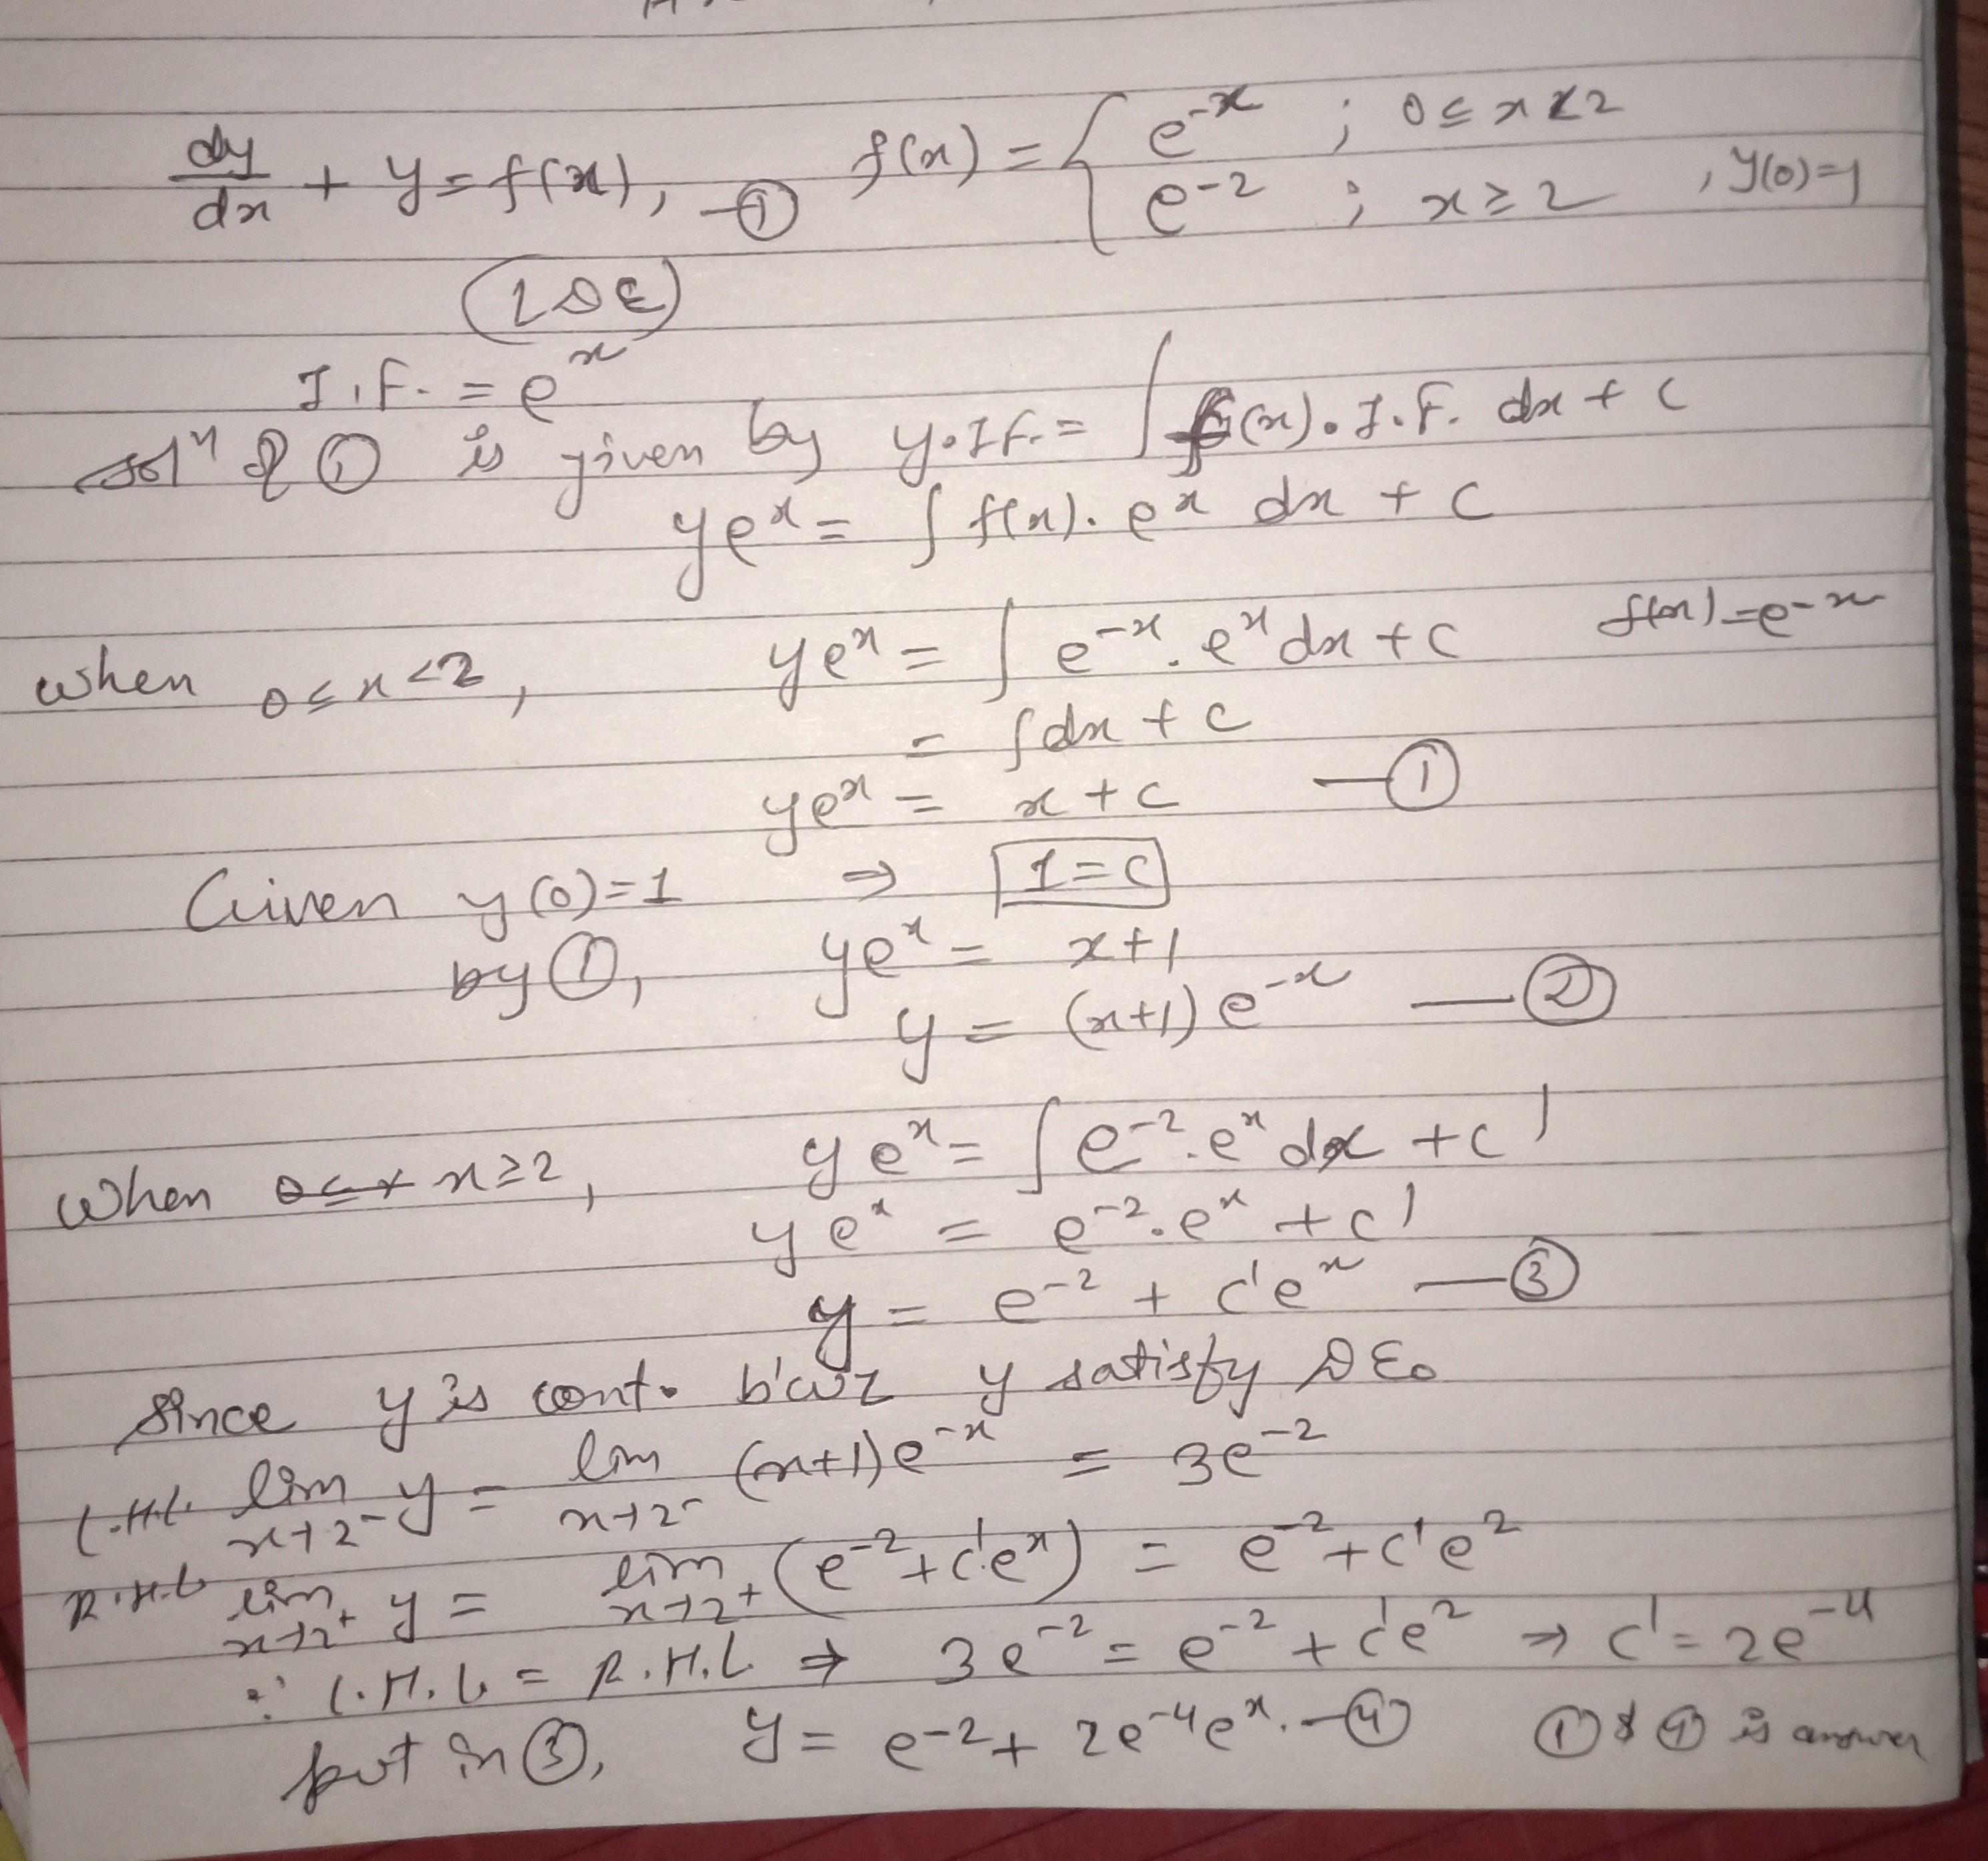 dy/dx + y = f(x), —① f(x) = { e^-x ; 0 ≤ x < 2
e^-2 ; x ≥ 2 , y(0)=1
(LDE)
I.F. = e^x
solⁿ of ① is given by y.IF. = ∫ f(x). I.F. dx + c
ye^x = ∫ f(x). e^x dx + c
when 0 ≤ x < 2, ye^x = ∫ e^-x . e^x dx + c f(x) = e^-x
= ∫ dx + c
ye^x = x + c —①
Given y(0)=1 ⇒ 1 = c
by ①, ye^x = x+1
y = (x+1) e^-x —②
When x ≥ 2, ye^x = ∫ e^-2 . e^x dx + c'
ye^x = e^-2 . e^x + c'
y = e^-2 + c'e^x —③
Since y is cont. b'coz y satisfy DE.
L.H.L. lim x→2^- y = lim x→2^- (x+1)e^-x = 3e^-2
R.H.L lim x→2^+ y = lim x→2^+ (e^-2 + c'e^x) = e^-2 + c'e^2
∵ L.H.L. = R.H.L ⇒ 3e^-2 = e^-2 + c'e^2 ⇒ c' = 2e^-4
put in ③, y = e^-2 + 2e^-4 e^x. —④ ① & ④ is answer